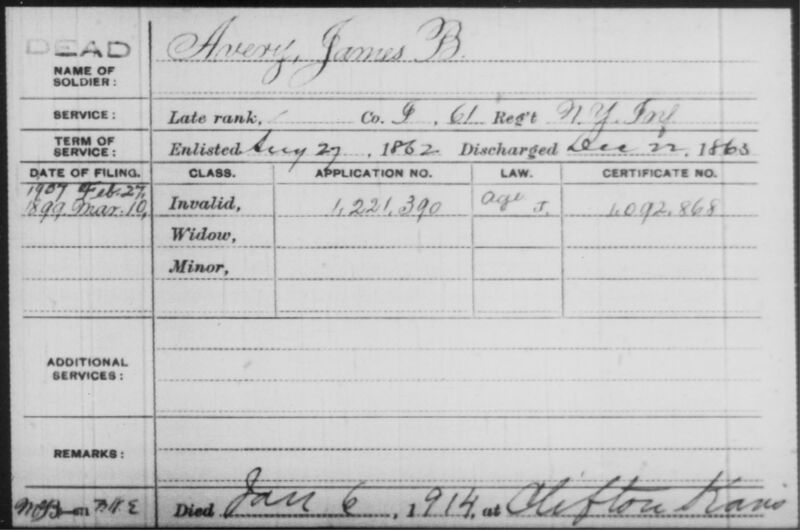 DEAD
Avery, James B.
NAME OF
SOLDIER:
SERVICE: Late rank, Co. I, 61 Reg't N.Y. Inf
TERM OF
SERVICE: Enlisted Aug 27, 1862 Discharged Dec 22, 1863
DATE OF FILING. CLASS. APPLICATION NO. LAW. CERTIFICATE NO.
1907 Feb. 27,
1899 Mar. 10, Invalid, 1,221,390 age J. 1,092,868
Widow,
Minor,
ADDITIONAL
SERVICES:
REMARKS:
Died Jan 6, 1914, at Clifton Kans